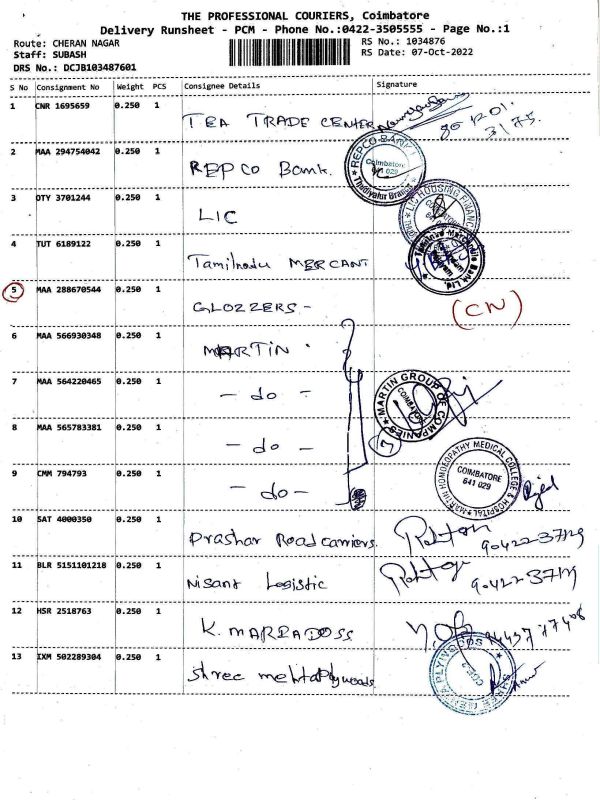 THE PROFESSIONAL COURIERS, Coimbatore
Delivery Runsheet - PCM - Phone No.:0422-3505555 - Page No.:1
Route: CHERAN NAGAR
RS No.: 1034876
Staff: SUBASH
RS Date: 07-Oct-2022
DRS No.: DCJB103487601
S No Consignment No Weight PCS Consignee Details Signature
1 CNR 1695659 0.250 1 TEA TRADE CENTER
80 1201.
3175.
2 MAA 294754042 0.250 1 REPCO Bank.
REPCO BANK
Coimbatore
641 029
Thudiyalur Branch
3 OTY 3701244 0.250 1 LIC
LIC HOUSING FINANCE
4 TUT 6189122 0.250 1 Tamilnadu MERCANT
Tamilnad Mercantile Bank Ltd
5 MAA 288670544 0.250 1 GLOZZERS -
(CN)
6 MAA 566930348 0.250 1 MARTIN
7 MAA 564220465 0.250 1 - do -
MARTIN GROUP OF COMPANIES
COIMBATORE
8 MAA 565783381 0.250 1 - do -
9 CMM 794793 0.250 1 - do -
MARTIN HOMOEOPATHY MEDICAL COLLEGE & HOSPITAL
COIMBATORE
641 029
10 SAT 4000350 0.250 1 Prashar Roadcarriers.
90422-37129
11 BLR 5151101218 0.250 1 Nisant Logistic
90422-37129
12 HSR 2518763 0.250 1 K. MARRADOSS
13 IXM 502289304 0.250 1 Shree mehta Plywoods